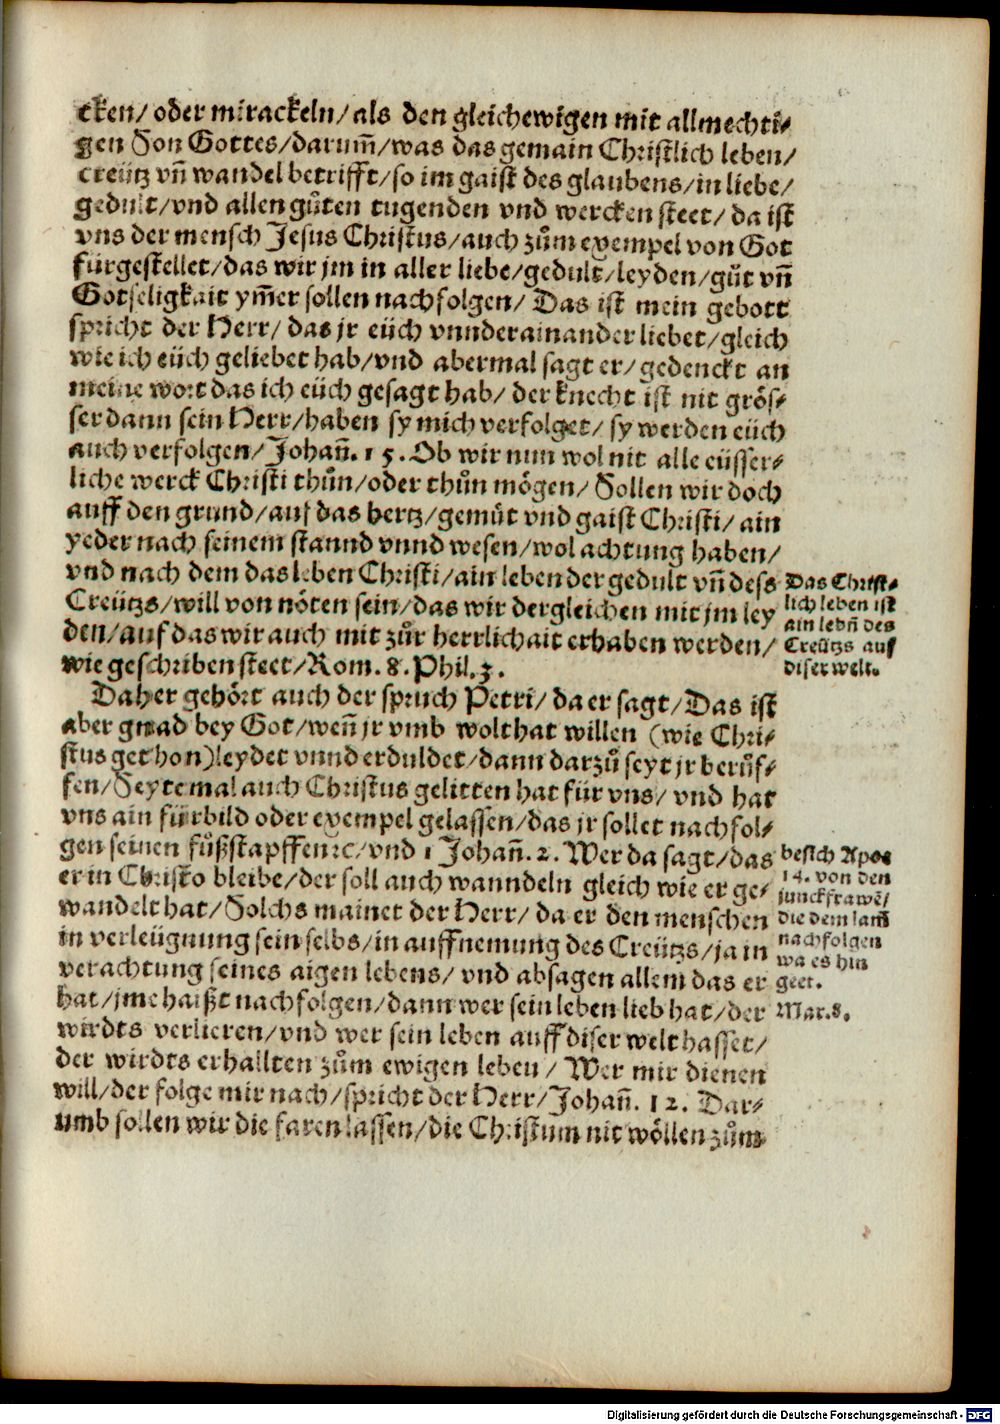 cken/ oder mirackeln/ als den gleichewigen mit allmechti-
gen Son Gottes/ darum̃/ was das gemain Christlich leben/
Creütz vnñ wandel betrifft/ so im gaist des glaubens/ in liebe/
gedult/ vnd allen gůten tugenden vnd wercken steet/ da ist
vns der mensch Jesus Christus/ auch zům exempel von Got
fürgestellet/ das wir jm in aller liebe/ gedult/ leyden/ gůt vnñ
Gotseligkait ym̃er sollen nachfolgen/ Das ist mein gebott
spricht der Herr/ das jr eüch vnnderainander liebet/ gleich
wie ich eüch geliebet hab/ vnd abermal sagt er/ gedenckt an
meine wort das ich eüch gesagt hab/ der knecht ist nit grös-
ser dann sein Herr/ haben sy mich verfolget/ sy werden eüch
auch verfolgen/ Johañ. 15. Ob wir nun wol nit alle eüsser-
liche werck Christi thůn/ oder thůn mögen/ Sollen wir doch
auff den grund/ auf das hertz/ gemüt vnd gaist Christi/ ain
yeder nach seinem stannd vnnd wesen/ wol achtung haben/
vnd nach dem das leben Christi/ ain leben der gedult vnñ dess
Creützs/ will von nöten sein/ das wir dergleichen mit jm ley
den/ auf das wir auch mit zůr herrlichait erhaben werden/
wie geschriben steet/ Rom. 8. Phil. 3.
Das Christ-
lich leben ist
ain lebñ des
Creützs auf
diser welt.
Daher gehört auch der spruch Petri/ da er sagt/ Das ist
aber gnad bey Got/ weñ jr vmb wolthat willen (wie Chri-
stus gethon) leydet vnnd erduldet/ dann darzů seyt jr berůf-
fen/ Seytemal auch Christus gelitten hat für vns/ vnd hat
vns ain fürbild oder exempel gelassen/ das jr sollet nachfol-
gen seinen fůßstapffen ꝛc/ vnd 1 Johañ. 2. Wer da sagt/ das
er in Christo bleibe/ der soll auch wanndeln gleich wie er ge-
wandelt hat/ Solchs mainet der Herr/ da er den menschen
in verleügnung sein selbs/ in auffnemung des Creützs/ ja in
verachtung seines aigen lebens/ vnd absagen allem das er
hat/ jme haißt nachfolgen/ dann wer sein leben lieb hat/ der
wirdts verlieren/ vnd wer sein leben auff diser welt hasset/
der wirdts erhallten zům ewigen leben/ Wer mir dienen
will/ der folge mir nach/ spricht der Herr/ Johañ. 12. Dar-
umb sollen wir die faren lassen/ die Christum nit wöllen zům
besich Apoc
14. von den
junckfrawẽ/
die dem lam̃
nachfolgen
wa es hin
geet.
Mar. 8.
Digitalisierung gefördert durch die Deutsche Forschungsgemeinschaft - DFG